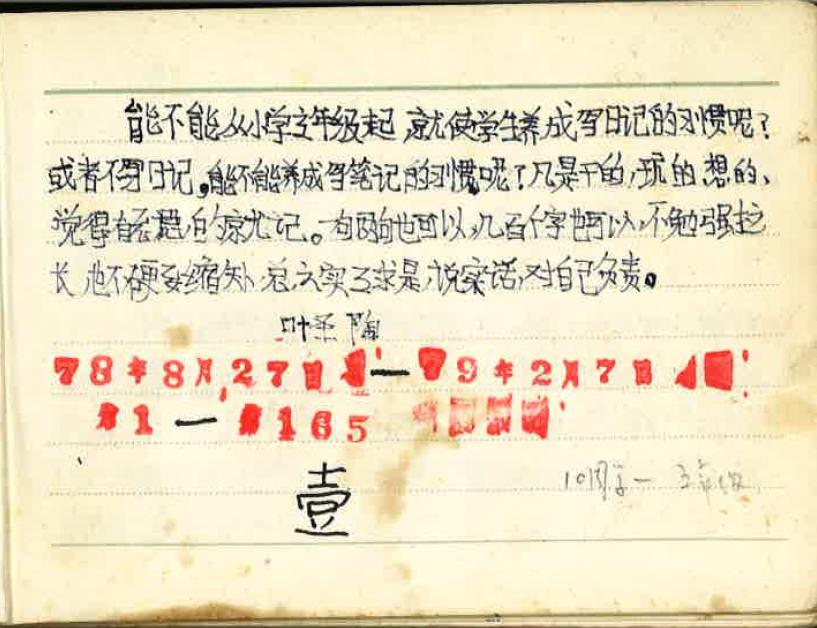 能不能从小学三年级起,就使学生养成写日记的习惯呢?
或者不写日记,能不能养成写笔记的习惯呢?凡是干的,玩的,想的、
觉得有意思的就记。有两句也可以,几百个字也可以,不勉强拉
长,也不硬要缩短。总之实事求是,说实话,对自己负责。
叶圣陶
78年8月27日—79年2月7日
#1—#165
壹
10周岁—